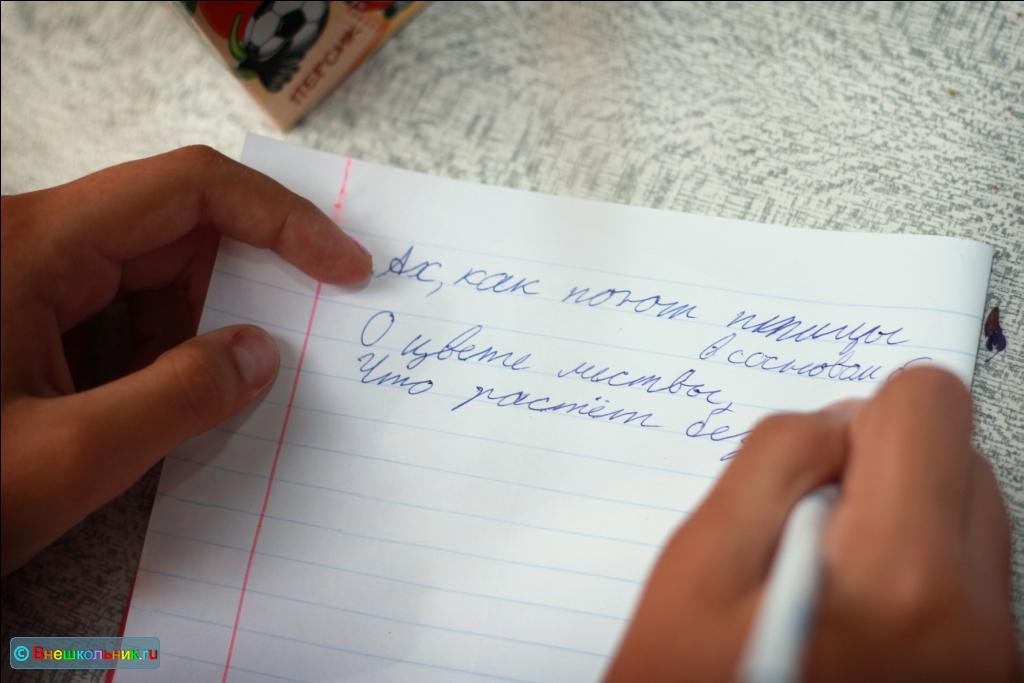 ПЕРСИК
Ах, как поют птицы
в сосновом
О цвете листвы,
Что растёт без
© Внешкольник.ru